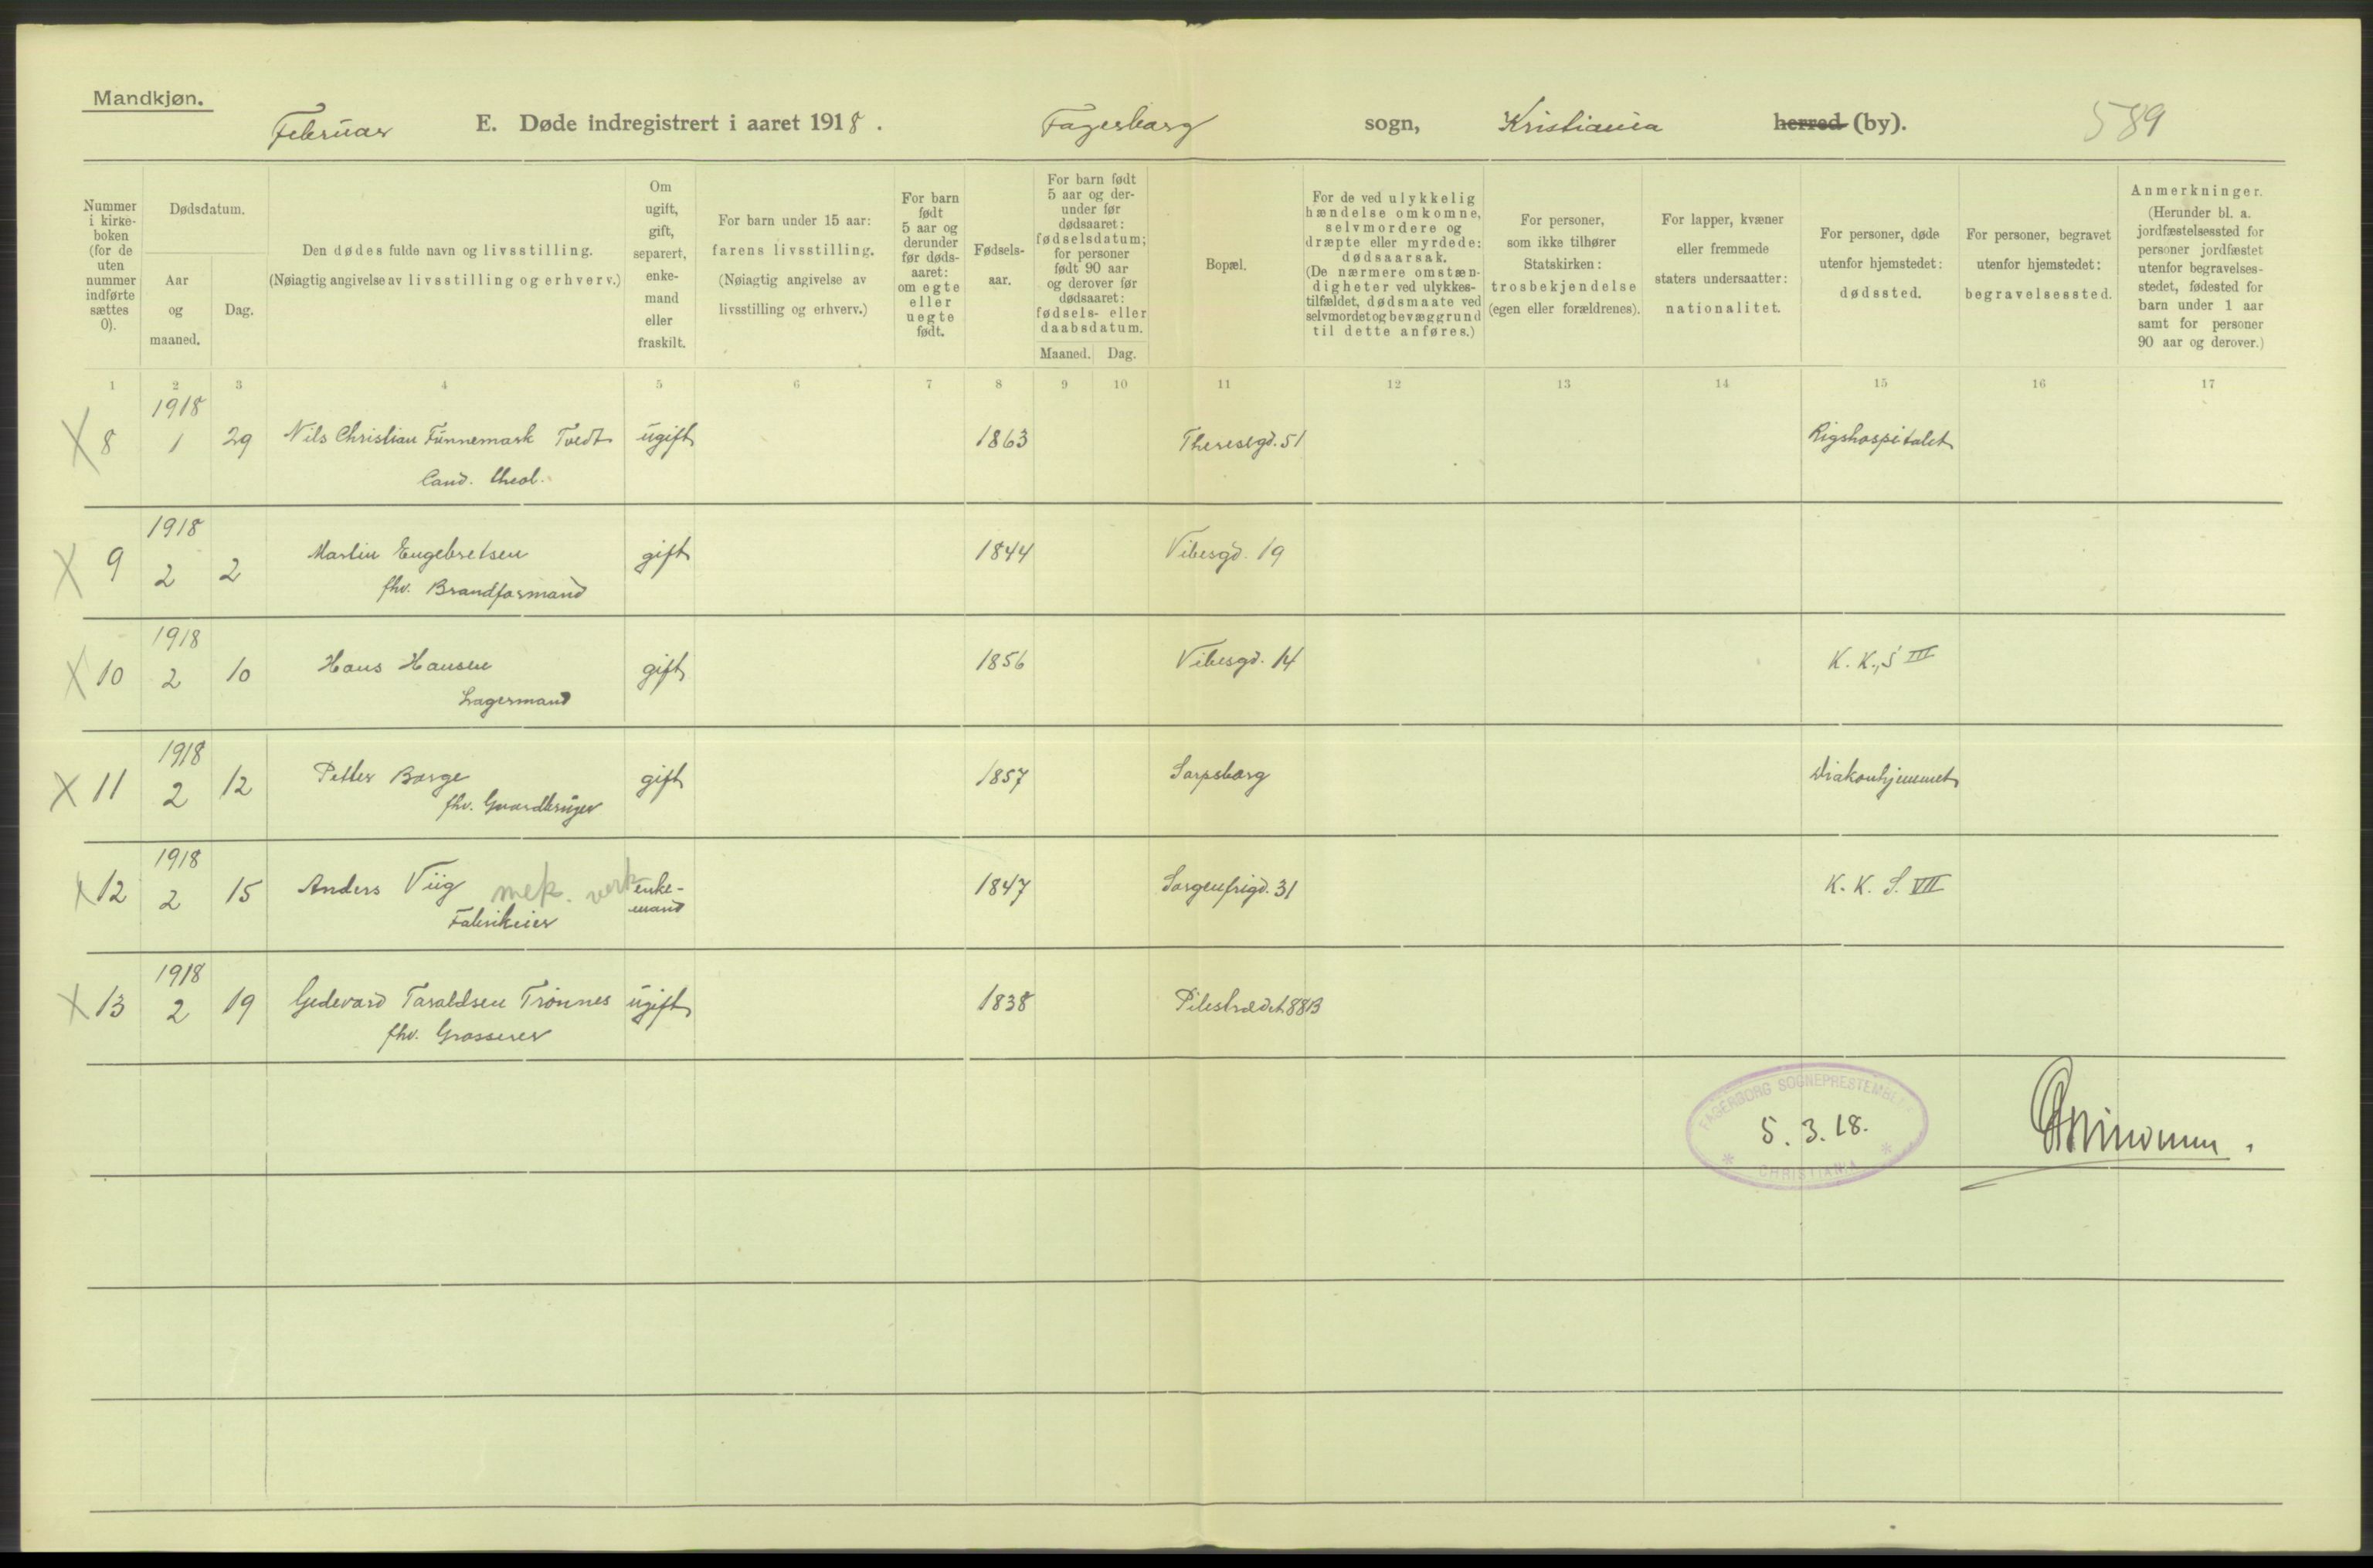 Mandkjøn.
Februar E. Døde indregistrert i aaret 1918. Fagerborg sogn, Kristiania herred (by). 589
Nummer i kirke-boken (for de uten nummer indførte sættes 0).
Dødsdatum.
Aar og maaned.
Dag.
Den dødes fulde navn og livsstilling.
(Nøiagtig angivelse av livsstilling og erhverv.)
Om ugift, gift, separert, enke-mand eller fraskilt.
For barn under 15 aar:
farens livsstilling.
(Nøiagtig angivelse av livsstilling og erhverv.)
For barn født 5 aar og derunder før døds-aaret: om egte eller uegte født.
Fødsels-aar.
For barn født 5 aar og der-under før dødsaaret: fødselsdatum; for personer født 90 aar og derover før dødsaaret: fødsels- eller daabsdatum.
Maaned. Dag.
Bopæl.
For de ved ulykkelig hændelse omkomne, selvmordere og dræpte eller myrdede: dødsaarsak.
(De nærmere omstæn-digheter ved ulykkes-tilfældet, dødsmaate ved selvmordet og bevæggrund til dette anføres.)
For personer, som ikke tilhører Statskirken: trosbekjendelse (egen eller forældrenes).
For lapper, kvæner eller fremmede staters undersaatter: nationalitet.
For personer, døde utenfor hjemstedet: dødssted.
For personer, begravet utenfor hjemstedet: begravelsessted.
Anmerkninger.
(Herunder bl. a. jordfæstelsessted for personer jordfæstet utenfor begravelses-stedet, fødested for barn under 1 aar samt for personer 90 aar og derover.)
1 2 3 4 5 6 7 8 9 10 11 12 13 14 15 16 17
1918
X 8 1 29 Nils Christian Tünnemark Tvedt ugift 1863 Theresegd. 51 Rigshospitalet
Cand. theol.
1918
X 9 2 2 Martin Engebretsen gift 1844 Vibesgd. 19
fhv. Brandformand
1918
X 10 2 10 Hans Hansen gift 1856 Vibesgd. 14 K. K., S III
Lagermand
1918
X 11 2 12 Petter Borge gift 1857 Sarpsborg Diakonhjemmet
fhv. Gaardbruger
1918
X 12 2 15 Anders Viig mek. verk enke-mand 1847 Sorgenfrigd. 31 K. K. S. VII
Fabrikeier
1918
X 13 2 19 Gudevard Taraldsen Trönnes ugift 1838 Pilestrædet 88B
fhv. Grosserer
FAGERBORG SOGNEPRESTEMBEDE
5.3.18.
* CHRISTIANIA *